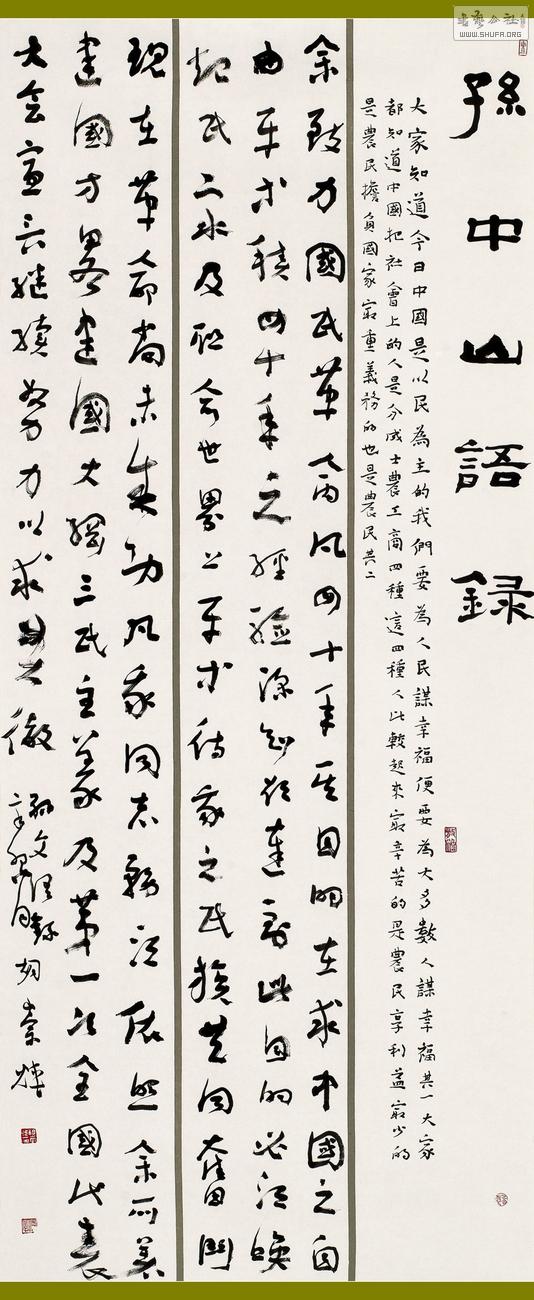 書藝公社
WWW.SHUFA.ORG
孫中山語録
大家知道今日中國是以民為主的我們要為人民謀幸福便要為大多數人謀幸福其一大家
都知道中國把社會上的人是分成士農工商四種這四種人比較起來最辛苦的是農民享利益最少的
是農民擔負國家最重義務的也是農民其二
余致力國民革命凡四十年其目的在求中國之自
由平等積四十年之經驗深知欲達到此目的必須喚
起民眾及聯合世界上平等待我之民族共同奮鬥
現在革命尚未成功凡我同志務須依照余所著
建國方略建國大綱三民主義及第一次全國代表
大會宣言繼續努力以求貫徹
孫文語錄
胡崇煒